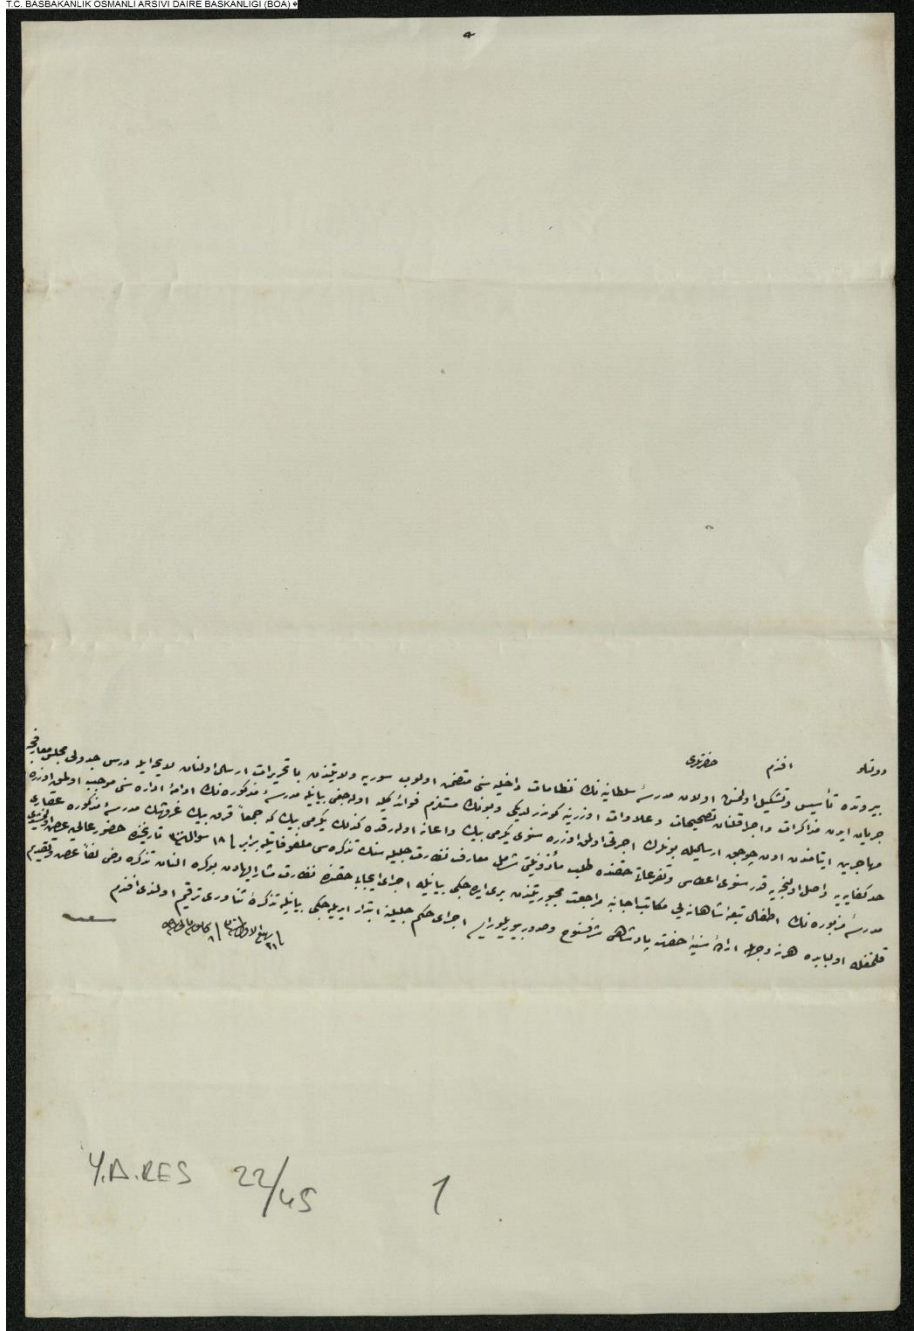 T.C. BASBAKANLIK OSMANLI ARSIVI DAIRE BASKANLIGI (BOA)
دولتلو افندم حضرتلری
بیروتده تأسیس وتشکیل اولنمش اولان مدرسۀ سلطانیه‌نك نظامات داخلیه‌سنی متضمن اولوب سوریه ولایتندن با تحریرات ارسال اولنان لایحه ایله درس جدولی مجلس معارفجه
جریان ایدن مذاکرات واجرا قلنان تصحیحات وعلاوات اوزرینه کوندرلدیکی وبونك مستلزم فوائد کلیه اوله‌جغی بیانیله مدرسۀ مذکوره‌نك ادامۀ اداره‌سنی موجب اولمق اوزره
مهاجرین ایتامندن اون چوجق ارسالیله بونلرك اجرتی اولمق اوزره سنوی یکرمی بیك واعانه اوله‌رق ده کذلك یکرمی بیك که جمعا قرق بیك غروشك مدرسۀ مذکوره
حد کفایه‌یه واصل اولنجیه قدر سنوی اعطاسی وتفرعاتی حقنده طلب مأذونیتی شامل معارف نظارت جلیله‌سنك تذکره‌سی ملفوفاتیله برابر تاریخنده حضور عالی
مدرسۀ مزبوره‌نك اطفال تبعۀ شاهانه‌یی مکاتب اجانبه مراجعت مجبوریتندن بری ایده‌جکی بیانیله اجرای ایجابی حقنده نظارت مشارالیهادن بو کره النان تذکره دخی لفا عرض وتقدیم
قلنمغله اولبابده هر نه وجهله ارادۀ سنیۀ حضرت پادشاهی شرفسنوح وصدور بیوریلور ایسه اجرای حکم جلیلنه ابتدار ایدیله‌جکی بیانیله تذکرۀ ثناوری ترقیم اولندی افندم
Y.A.RES 22/45 1